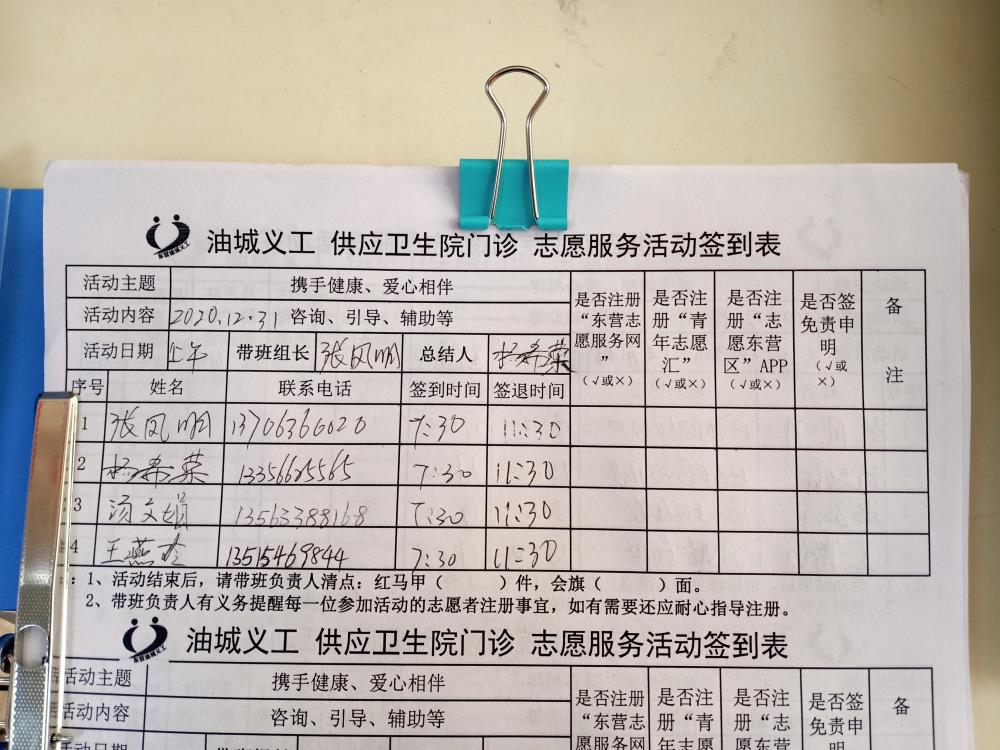 油城义工 供应卫生院门诊 志愿服务活动签到表
活动主题 携手健康、爱心相伴 是否注册“东营志愿服务网”（√或×） 是否注册“青年志愿汇”（√或×） 是否注册“志愿东营区”APP（√或×） 是否签免责申明（√或×） 备注
活动内容 2020.12.31 咨询、引导、辅助等
活动日期 上午 带班组长 张凤明 总结人 杨希荣
序号 姓名 联系电话 签到时间 签退时间
1 张凤明 13706366020 7:30 11:30
2 杨希荣 13356625565 7:30 11:30
3 汤文娟 13563388168 7:30 11:30
4 王燕玲 13515469844 7:30 11:30
：1、活动结束后，请带班负责人清点：红马甲（ ）件，会旗（ ）面。
2、带班负责人有义务提醒每一位参加活动的志愿者注册事宜，如有需要还应耐心指导注册。
油城义工 供应卫生院门诊 志愿服务活动签到表
活动主题 携手健康、爱心相伴 是否注册“东营志愿服务网 是否注册“青年志愿 是否注册“志愿东营 是否签免责申明 备
活动内容 咨询、引导、辅助等
活动日期